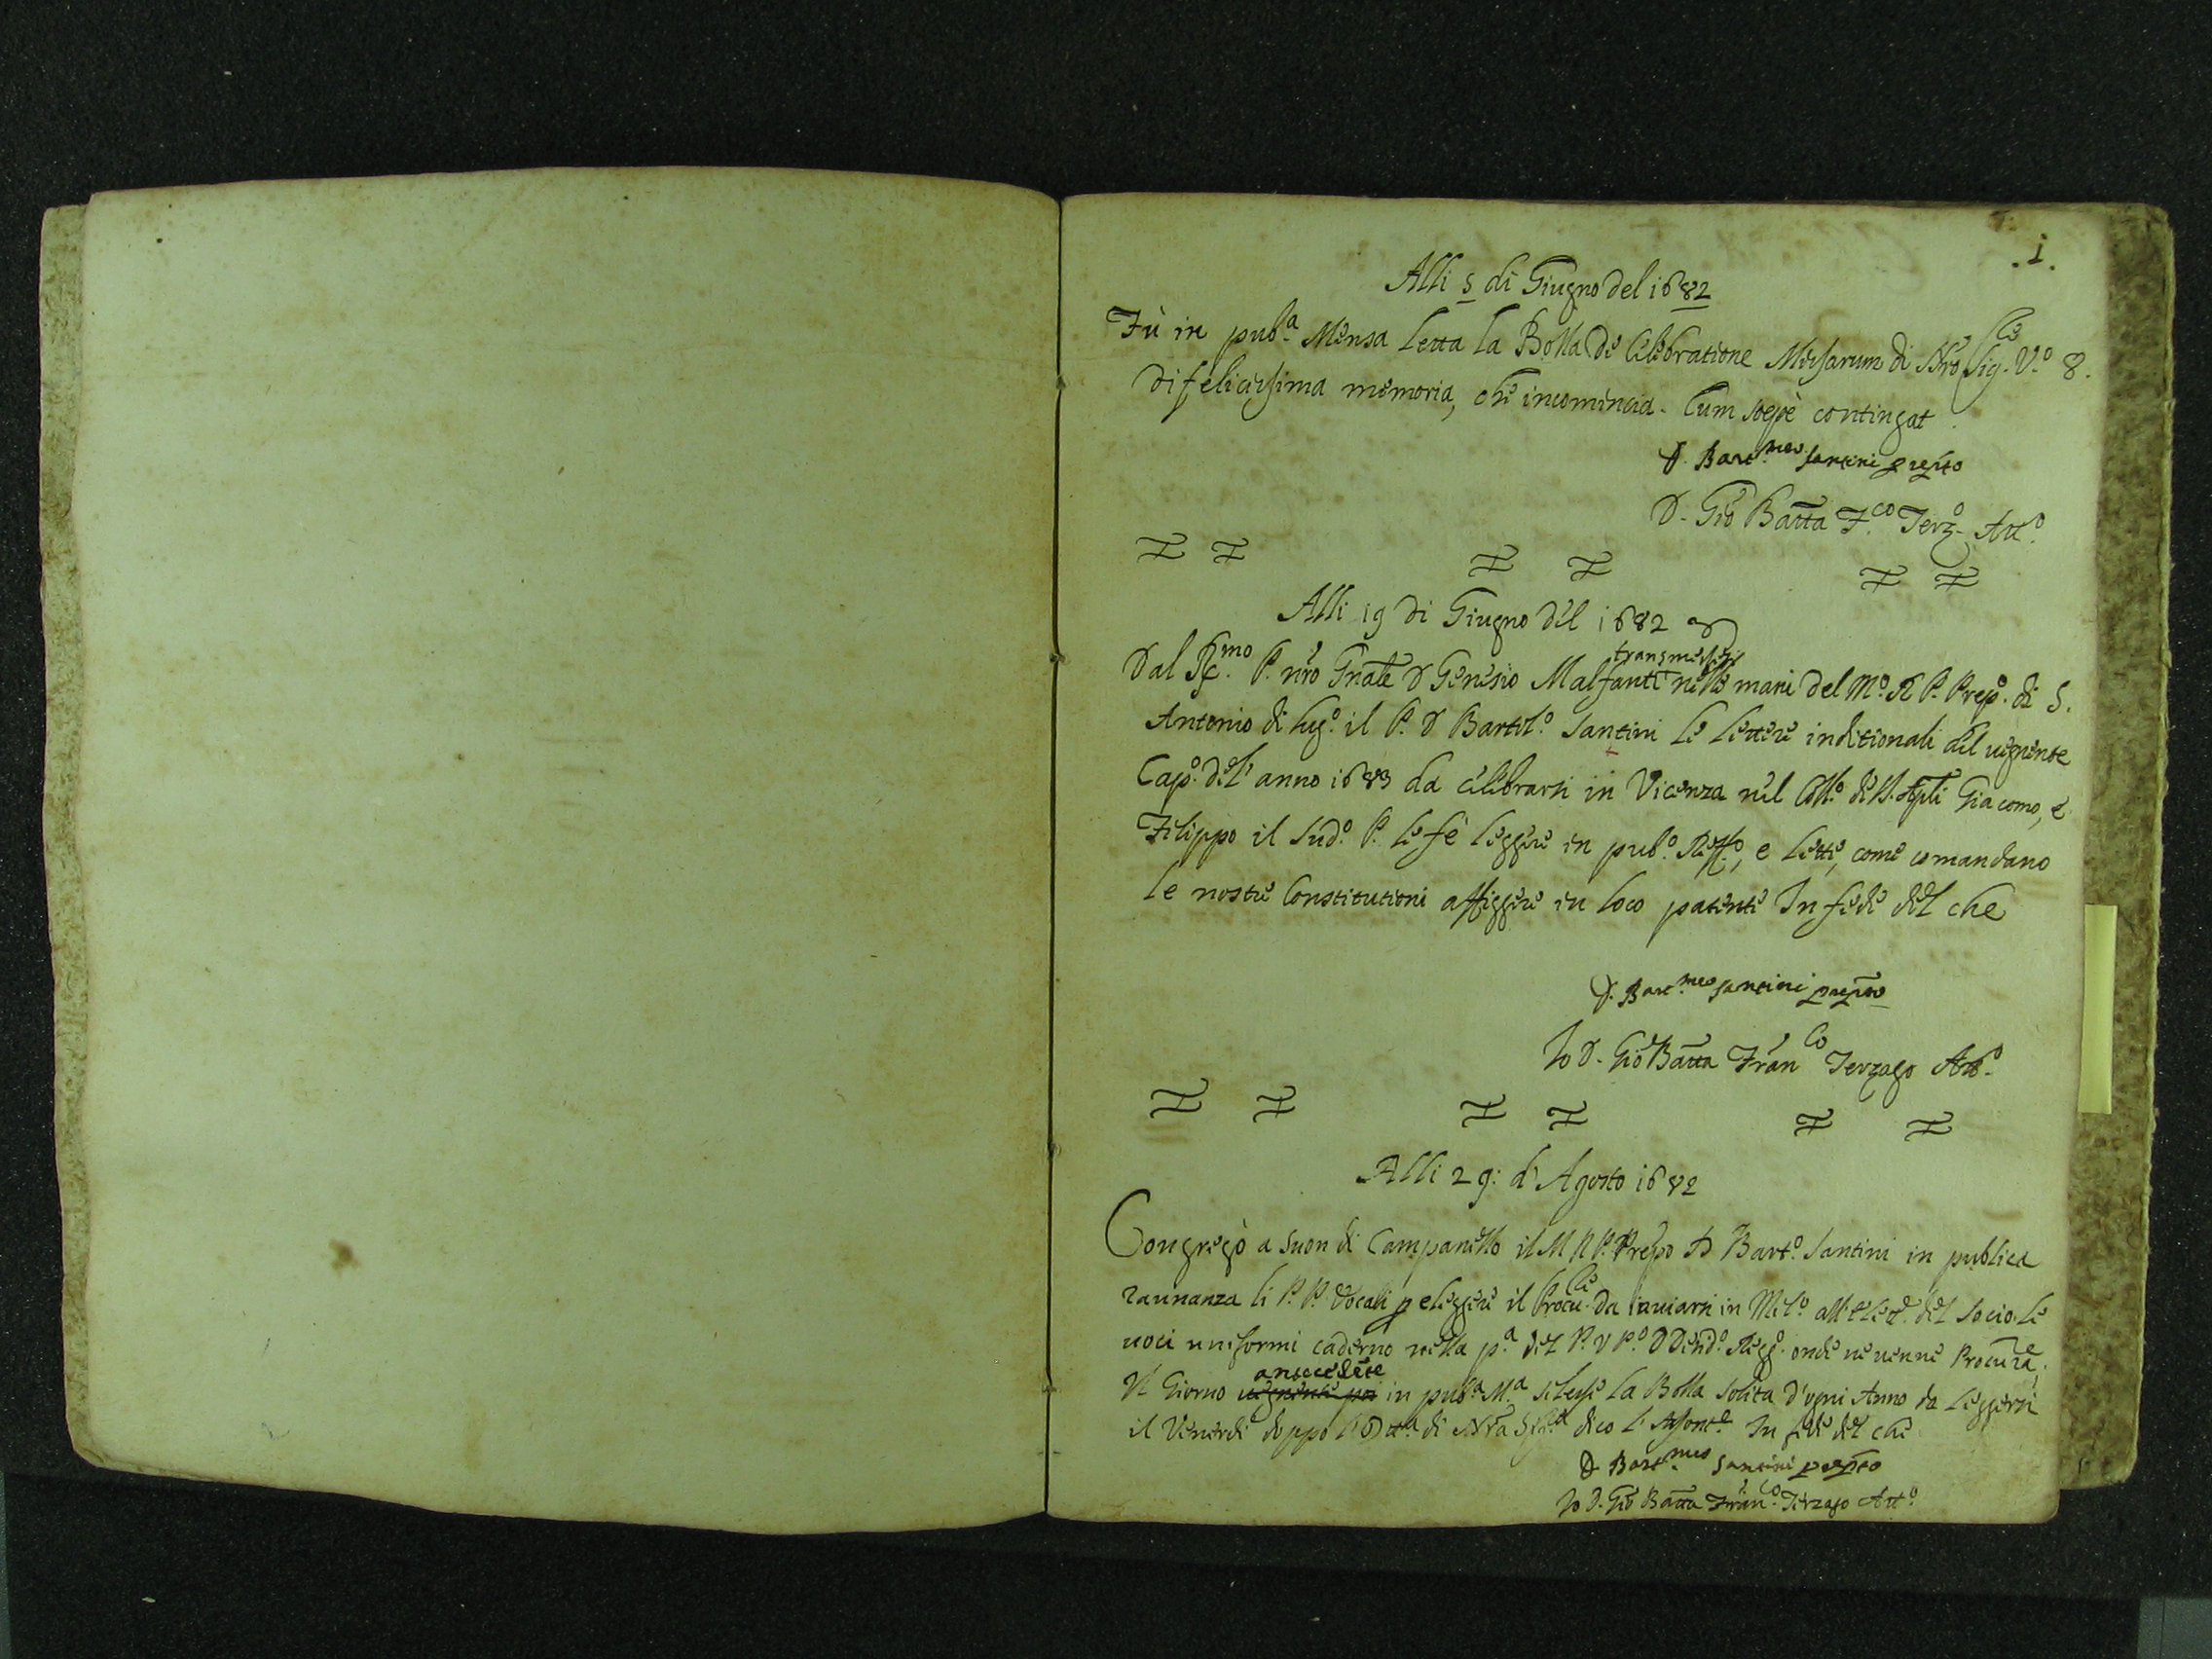 .1.
Alli 5 di Giugno del 1682
Fù in pub.a Mensa letta la Bolla de Celebratione Missarum di Nro Sig.re V.o 8.
di felicissima memoria, che incomincia. Cum sæpè contingat
D. Bart.meo Santini prepto
D. Gio Batta F.co Terz.o Att.o
Alli 19 di Giugno del 1682
Dal R.mo P. nro Gnale D Genesio Malfanti transmesse nelle mani del M.o R P. Prep.o di S.
Antonio di Lug.o il P. D Bartol.o Santini le lettere inditionali del uegnente
Cap.o dell' anno 1683 da celebrarsi in Vicenza nel Coll.o de SS. Apli Giacomo, e
Filippo il Sud.o P. le fè leggere in pub.o Reff.o, e lette, come comandano
le nostre Constitutioni affiggere in loco patente In fede del che
D. Bart.meo Santini prepto
Io D. Gio Batta Fran.co Terzago Att.o
Alli 29: d'Agosto 1682
Congregò a suon di Campanello il M R P. Prepo D Bart.o Santini in publica
raunanza li P. P. Vocali p eleggere il Procu.re da inuiarsi in Mil.o all' elez.e del Socio. le
uoci uniformi caderno nella p.a del P. V P.o D Desid.o Regg.o onde ne uenne Procura.re
Il Giorno uegnente poi antecedete in pub.a M.a si lesse la Bolla solita d'ogni Anno da leggersi
il Venerdi doppo l' di Nra Sig.ra dico l'Assont.e In fede del che
D. Bart.meo Santini prepto
Io D. Gio Batta Fran.co Terzago Att.o